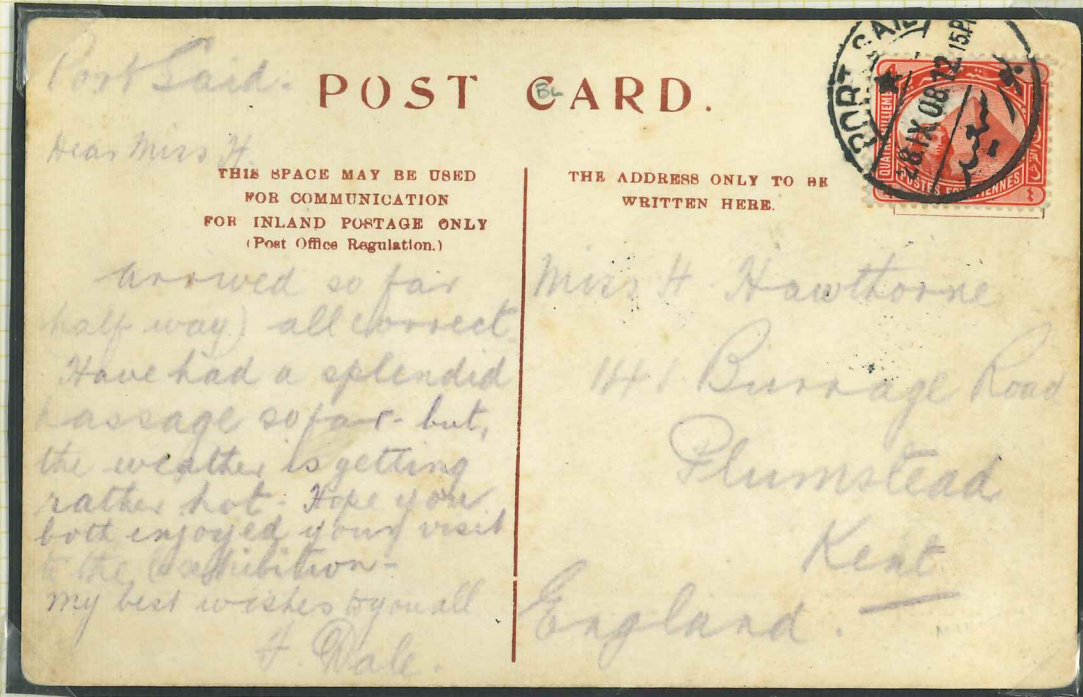 Port Said.
POST CARD.
BL
PORT SAID
28.IX 08.12
15.PM
بورسعيد
QUATRE MILLIEMES
POSTES EGYPTIENNES
٤
Dear Miss H.
THIS SPACE MAY BE USED
FOR COMMUNICATION
FOR INLAND POSTAGE ONLY
(Post Office Regulation.)
arrived so far
half way) all correct
Have had a splendid
passage so far - but,
the weather is getting
rather hot - Hope you
both enjoyed your visit
to the Exhibition -
my best wishes to you all
F. Dale.
THE ADDRESS ONLY TO BE
WRITTEN HERE.
Miss H. Hawthorne
141 Burrage Road
Plumstead
Kent
England.